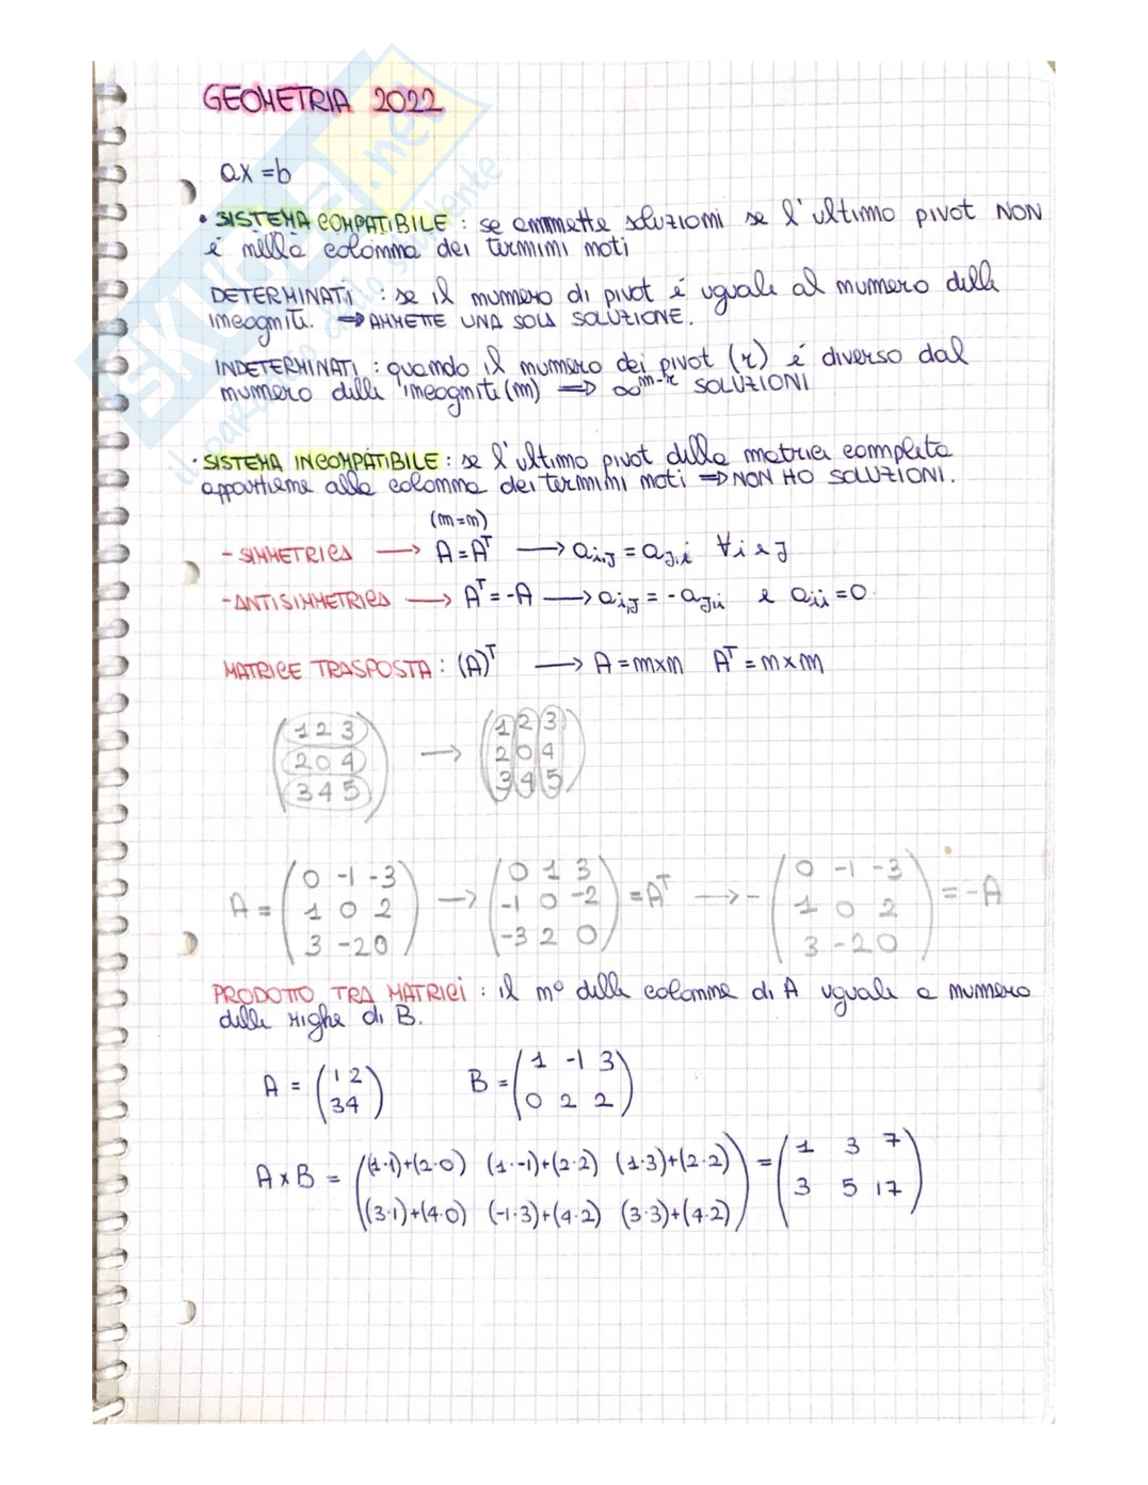 GEOMETRIA 2022
ax = b
• SISTEMA COMPATIBILE : se ammette soluzioni se l'ultimo pivot NON
è nella colonna dei termini noti
DETERMINATI : se il numero di pivot è uguale al numero delle
incognite. ⟹ AMMETTE UNA SOLA SOLUZIONE.
INDETERMINATI : quando il numero dei pivot (r) è diverso dal
numero delle incognite (n) ⟹ ∞ⁿ⁻ʳ SOLUZIONI
• SISTEMA INCOMPATIBILE : se l'ultimo pivot della matrice completa
appartiene alla colonna dei termini noti ⟹ NON HO SOLUZIONI.
(m=n)
- SIMMETRICA ⟶ A = Aᵀ ⟶ ai,j = aj,i ∀ i e j
- ANTISIMMETRICA ⟶ Aᵀ = -A ⟶ ai,j = - aj,i e aii = 0
MATRICE TRASPOSTA : (A)ᵀ ⟶ A = m×n Aᵀ = n×m
1 2 3 1 2 3
2 0 4 ⟶ 2 0 4
3 4 5 3 4 5
0 -1 -3 0 1 3 0 -1 -3
A = 1 0 2 ⟶ -1 0 -2 = Aᵀ ⟶ - 1 0 2 = -A
3 -2 0 -3 2 0 3 -2 0
PRODOTTO TRA MATRICI : il n° delle colonne di A uguale a numero
delle righe di B.
A = (1 2 B = (1 -1 3
3 4) 0 2 2)
A × B = ((1·1)+(2·0) (1·-1)+(2·2) (1·3)+(2·2) = (1 3 7
(3·1)+(4·0) (-1·3)+(4·2) (3·3)+(4·2)) 3 5 17)
SKUOLA.net
il paradiso dello studente